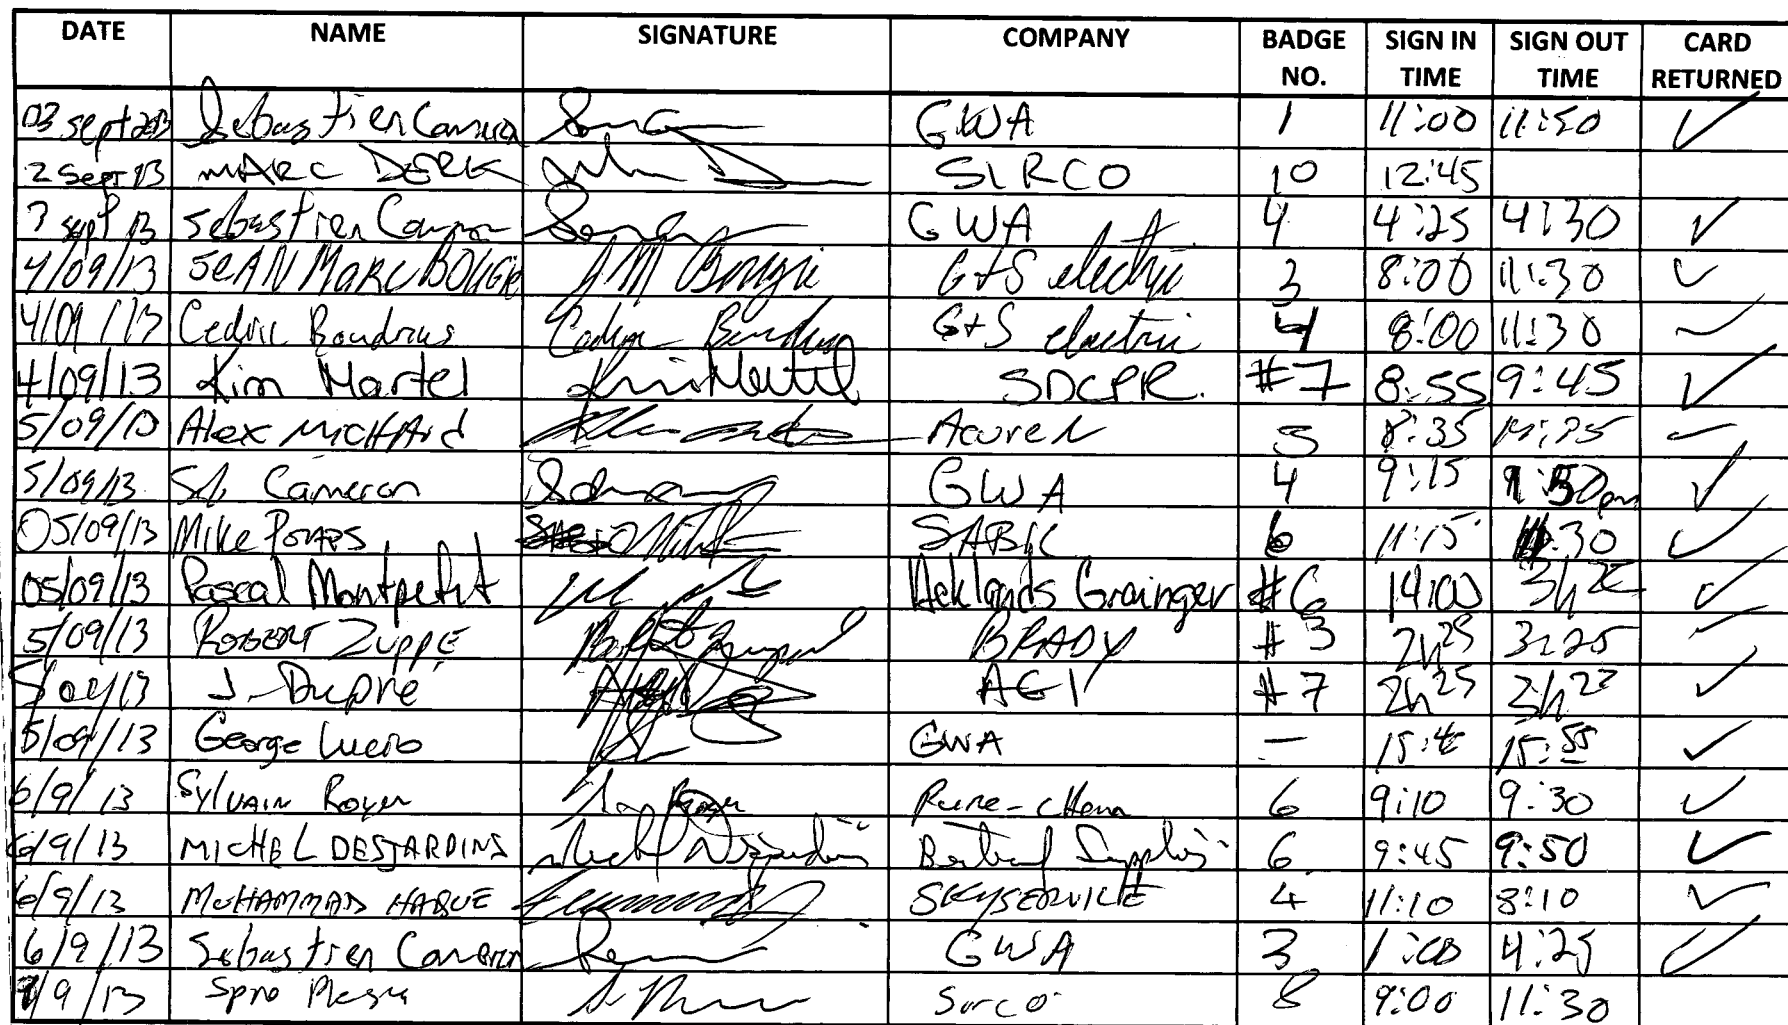 DATE NAME SIGNATURE COMPANY BADGE NO. SIGN IN TIME SIGN OUT TIME CARD RETURNED
03 sept 2013 Sebastien Cameron GWA 1 11:00 11:50 ✓
2 Sept 13 MARC DERK SIRCO 10 12:45
3 sept 13 Sebastien Cameron GWA 4 4:25 4:30 ✓
4/09/13 JEAN MARC BOUGIE JM Bougie G+S electric 3 8:00 11:30 ✓
4/09/13 Cedric Boudrias G+S electric 4 8:00 11:30 ✓
4/09/13 Kim Martel Kim Martel SDCPR. #7 8:55 9:45 ✓
5/09/13 Alex Michard Acuren 5 8:35 ✓
5/09/13 Seb Cameron GWA 4 9:15 pm ✓
05/09/13 Mike SABIC 6 11:15 :30 ✓
05/09/13 Pascal Montpetit Acklands Grainger #6 14:00 ✓
5/09/13 ROBERT ZUPPE BRADY #3 2h25 3h25 ✓
5/09/13 J. Dupre AGI #7 2h25 ✓
5/09/13 George Lucio GWA — 15:55 ✓
6/9/13 Sylvain Royer 6 9:10 9:30 ✓
6/9/13 MICHEL DESJARDINS Michel Desjardins Bertrand Supplies 6 9:45 9:50 ✓
6/9/13 MOHAMMAD HAQUE SKYSERVICE 4 11:10 3:10 ✓
6/9/13 Sebastien Cameron GWA 3 1:00 4:25 ✓
9/9/13 8 9:00 11:30